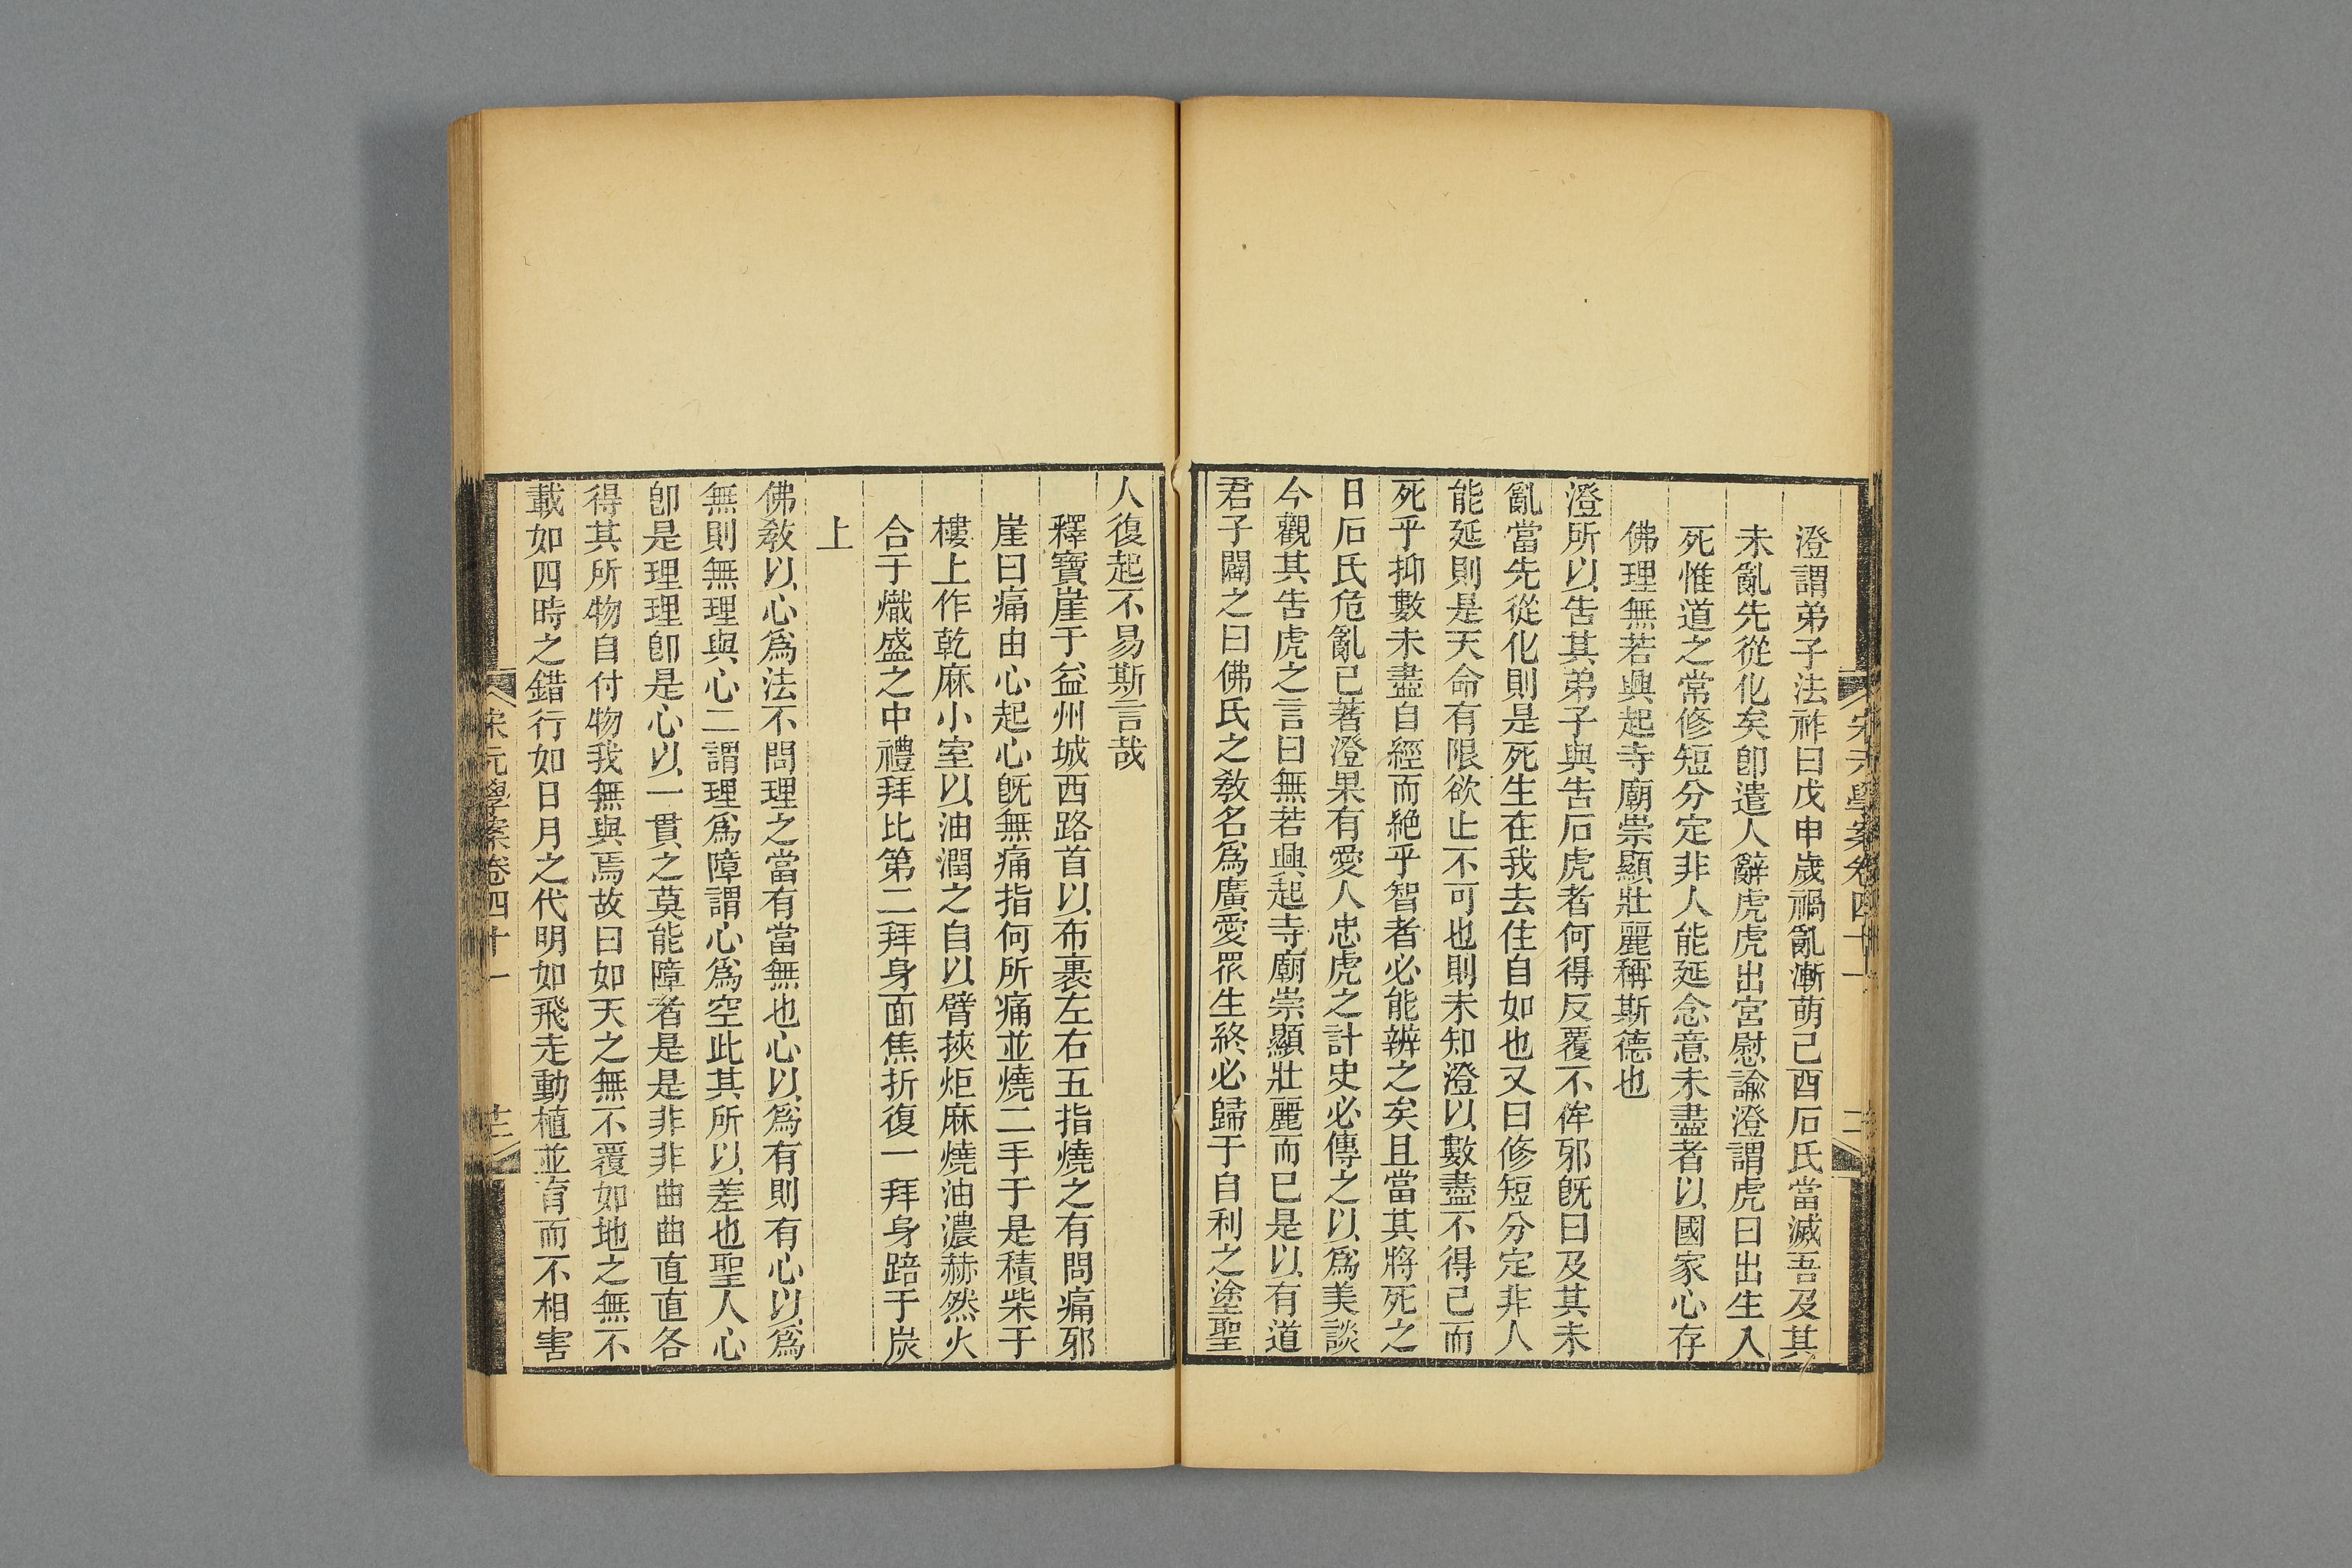 宋元學案卷四十一
澄謂弟子法祚曰戊申歲禍亂漸萌己酉石氏當滅吾及其
未亂先從化矣卽遣人辭虎虎出宮慰諭澄謂虎曰出生入
死惟道之常修短分定非人能延念意未盡者以國家心存
佛理無若興起寺廟崇顯壯麗稱斯德也
澄所以告其弟子與告石虎者何得反覆不侔邪旣曰及其未
亂當先從化則是死生在我去住自如也又曰修短分定非人
能延則是天命有限欲止不可也則未知澄以數盡不得已而
死乎抑數未盡自經而絕乎智者必能辨之矣且當其將死之
日石氏危亂已著澄果有愛人忠虎之計史必傳之以爲美談
今觀其告虎之言曰無若興起寺廟崇顯壯麗而已是以有道
君子闢之曰佛氏之敎名爲廣愛眾生終必歸于自利之塗聖
人復起不易斯言哉
釋寶崖于益州城西路首以布裹左右五指燒之有問痛邪
崖曰痛由心起心旣無痛指何所痛並燒二手于是積柴于
樓上作乾麻小室以油潤之自以臂挾炬麻燒油濃赫然火
合于熾盛之中禮拜比第二拜身面焦折復一拜身踣于炭
上
佛敎以心爲法不問理之當有當無也心以爲有則有心以爲
無則無理與心二謂理爲障謂心爲空此其所以差也聖人心
卽是理理卽是心以一貫之莫能障者是是非非曲曲直直各
得其所物自付物我無與焉故曰如天之無不覆如地之無不
載如四時之錯行如日月之代明如飛走動植並育而不相害
宋元學案卷四十一